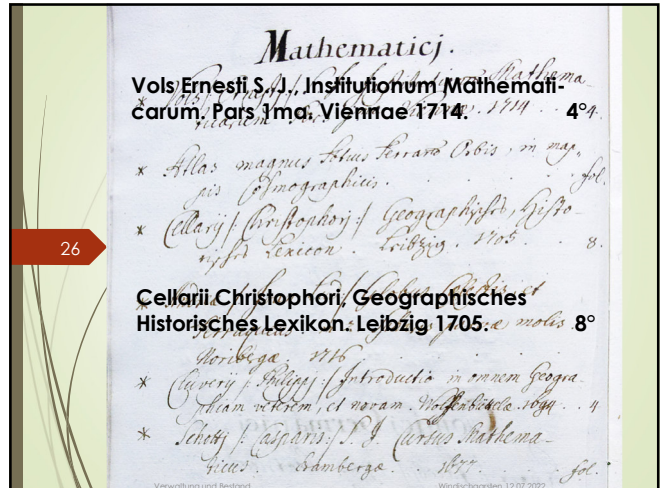 Mathematicj.
Vols Ernesti S.J., Institutionum Mathemati-
carum. Pars 1ma. Viennae 1714. 4°
1714 4.
* Atlas magnus totius Terrarū Orbis, in map„
pis Cosmographicis. fol.
* Cellarij /: Christophorj :/ Geographisches, Histo-
risches Lexicon. Leibzig. 1705. 8.
26
Cellarii Christophori, Geographisches
Historisches Lexikon. Leibzig 1705. 8°
molis
Noribergæ. 1716.
* Cluverij /: Philippj :/ Introductio in omnem Geogra-
phiam veterem, et novam. Wolfenbüttelæ. 1694. 4
* Schottj /: Casparis :/ S. J. Cursus Mathema-
ticus. Bambergæ. 1677. fol.
Verwaltung und Bestand
Windischgarsten 12.07.2022